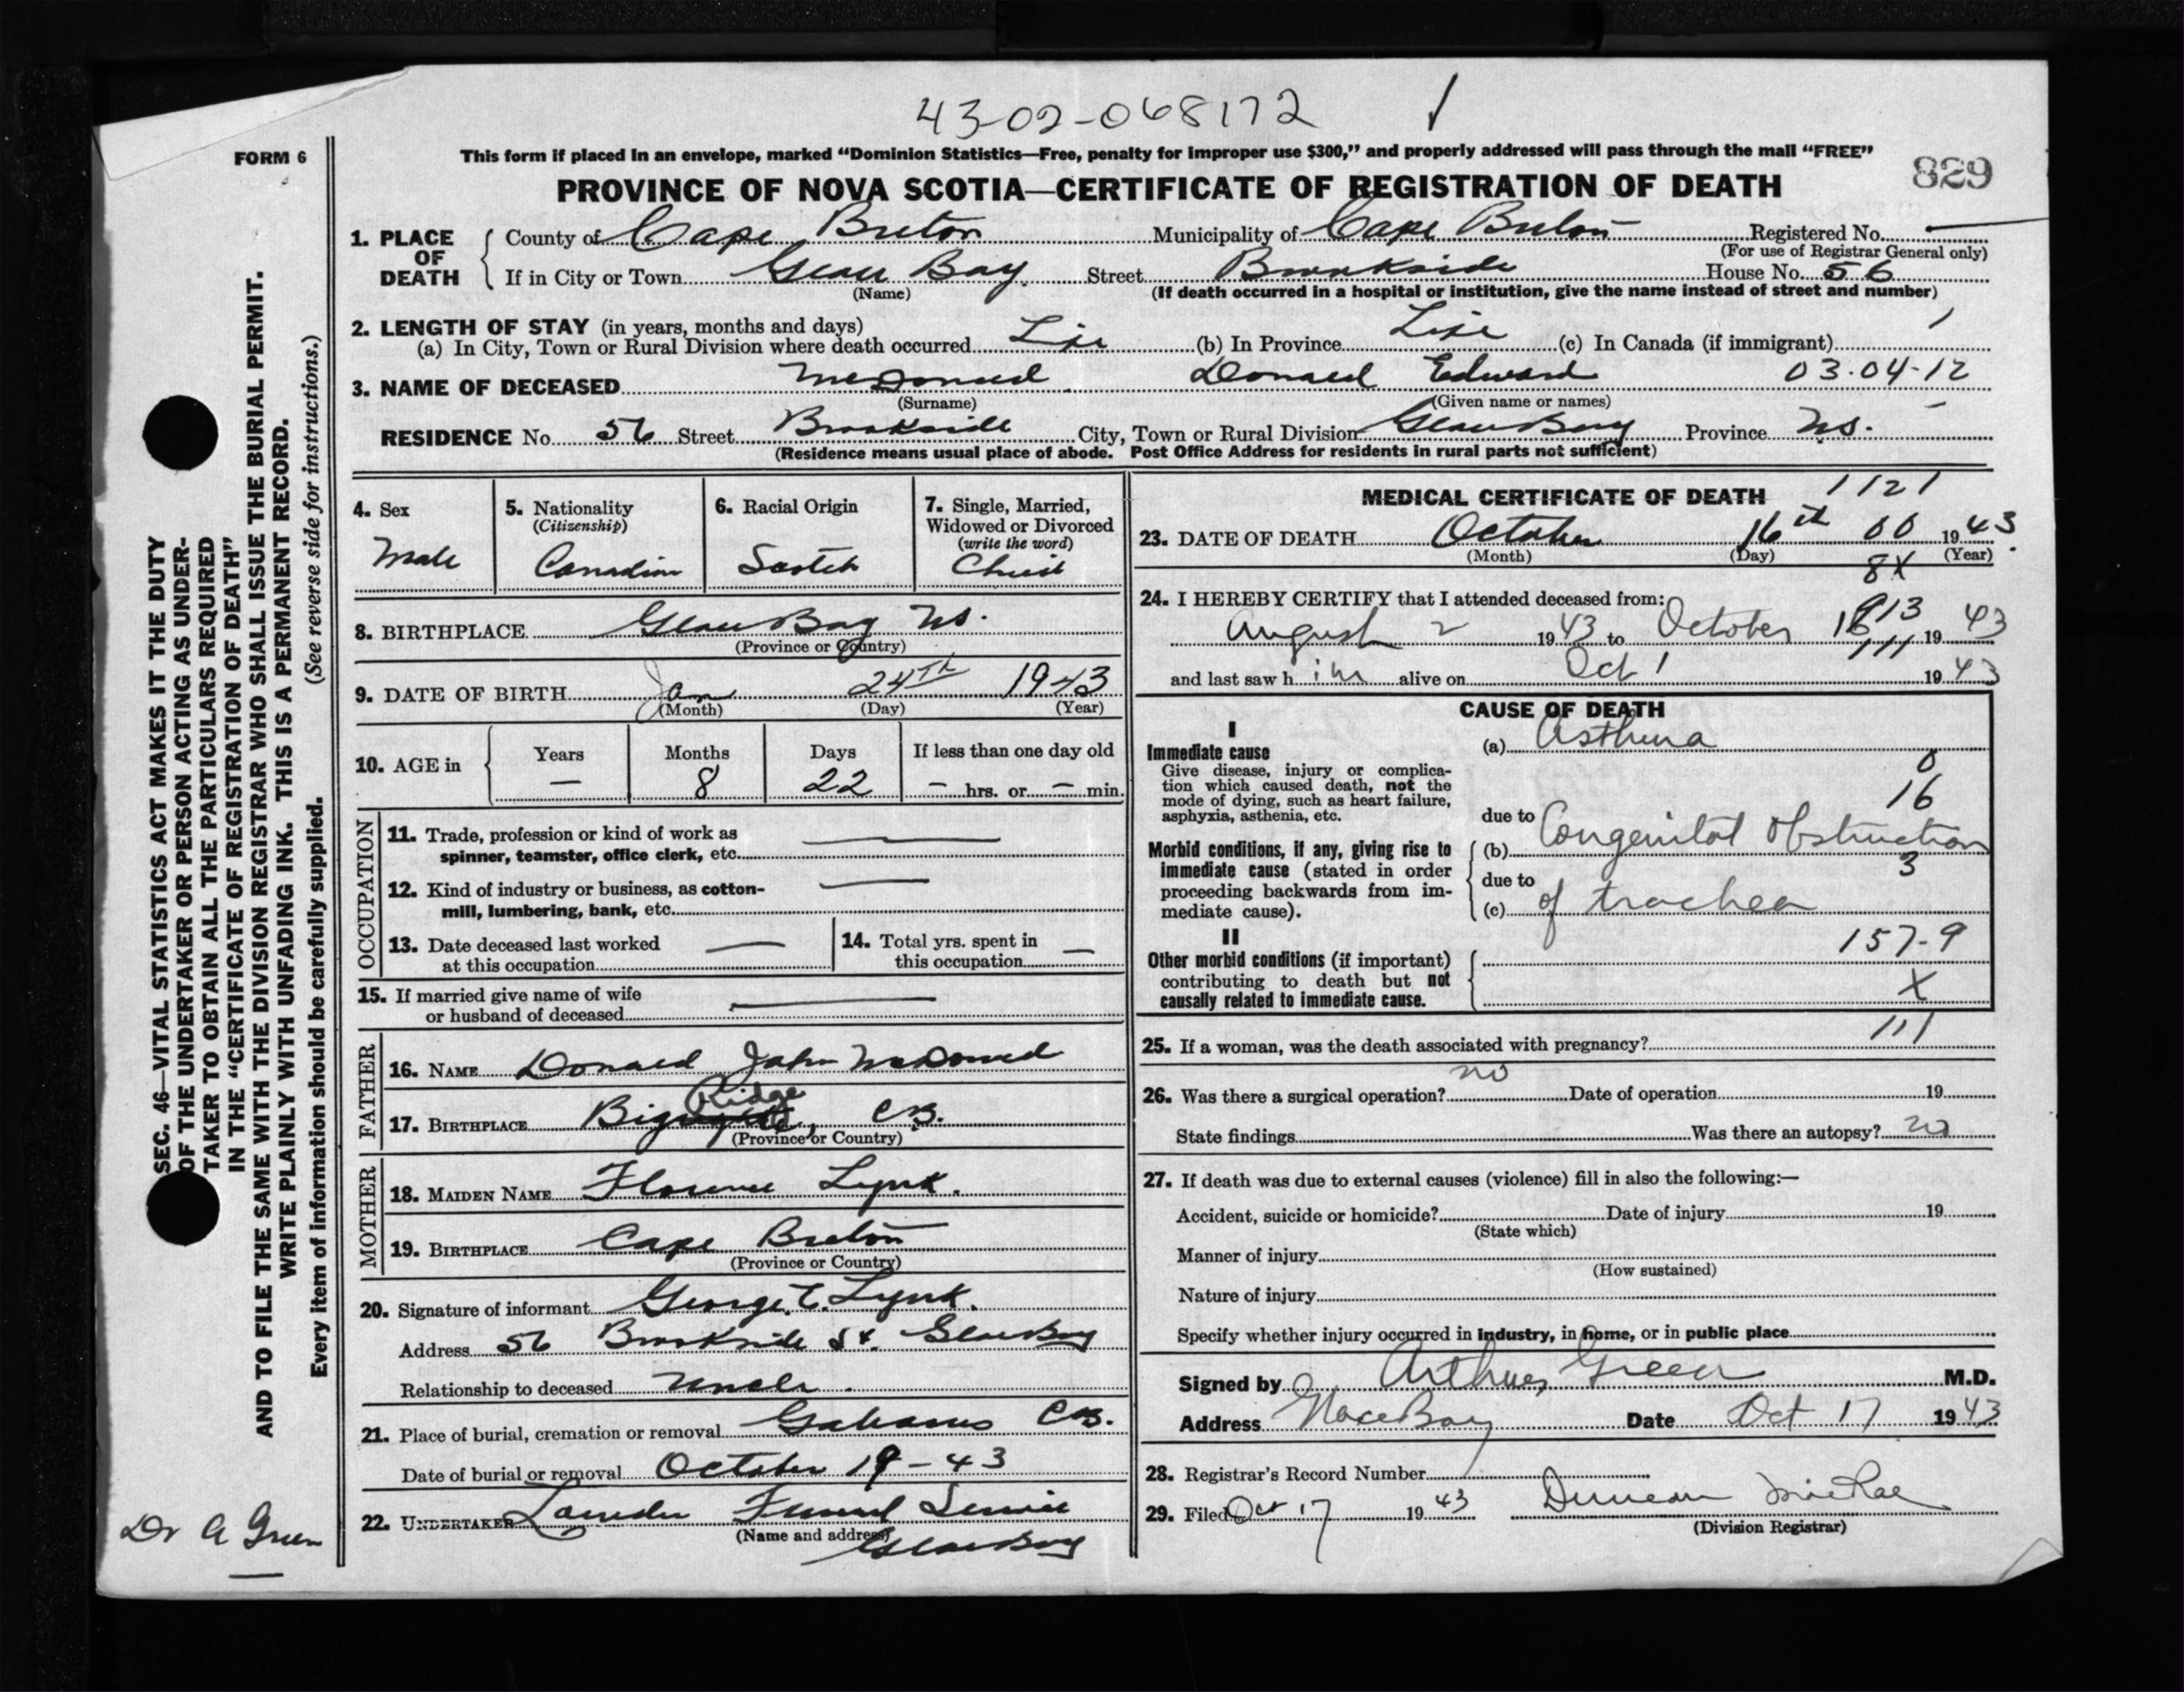 43-02-068172 /
FORM 6
This form if placed in an envelope, marked “Dominion Statistics—Free, penalty for improper use $300,” and properly addressed will pass through the mail “FREE”
829
PROVINCE OF NOVA SCOTIA—CERTIFICATE OF REGISTRATION OF DEATH
1. PLACE OF DEATH
County of Cape Breton Municipality of Cape Breton Registered No. —
(For use of Registrar General only)
If in City or Town Glace Bay. Street Brookside House No. 56
(Name) (If death occurred in a hospital or institution, give the name instead of street and number)
2. LENGTH OF STAY (in years, months and days)
(a) In City, Town or Rural Division where death occurred Life (b) In Province Life (c) In Canada (if immigrant) /
3. NAME OF DECEASED McDonald Donald Edward 03-04-12
(Surname) (Given name or names)
RESIDENCE No. 56 Street Brookside City, Town or Rural Division Glace Bay Province N.S.
(Residence means usual place of abode. Post Office Address for residents in rural parts not sufficient)
4. Sex
Male
5. Nationality
(Citizenship)
Canadian
6. Racial Origin
Scotch
7. Single, Married,
Widowed or Divorced
(write the word)
Child
8. BIRTHPLACE Glace Bay N.S.
(Province or Country)
9. DATE OF BIRTH Jan 24TH 1943
(Month) (Day) (Year)
10. AGE in
Years Months Days If less than one day old
— 8 22 — hrs. or — min.
OCCUPATION
11. Trade, profession or kind of work as
spinner, teamster, office clerk, etc.
12. Kind of industry or business, as cotton-
mill, lumbering, bank, etc.
13. Date deceased last worked
at this occupation
14. Total yrs. spent in
this occupation
15. If married give name of wife
or husband of deceased
FATHER
16. NAME Donald John McDonald
17. BIRTHPLACE Big Ridge, C.B.
(Province or Country)
MOTHER
18. MAIDEN NAME Florence Lynk.
19. BIRTHPLACE Cape Breton
(Province or Country)
20. Signature of informant George E. Lynk.
Address 56 Brookside St. Glace Bay
Relationship to deceased Uncle.
21. Place of burial, cremation or removal Gabarus C.B.
Date of burial or removal October 19-43
22. UNDERTAKER Funeral Service
(Name and address)
Glace Bay
MEDICAL CERTIFICATE OF DEATH 1121
23. DATE OF DEATH October 16th 00 1943.
(Month) (Day) (Year)
8X
24. I HEREBY CERTIFY that I attended deceased from:
August 2 1943 to October 16 1943
913
111
and last saw him alive on Oct 1 1943
CAUSE OF DEATH
I
Immediate cause
Give disease, injury or complica-
tion which caused death, not the
mode of dying, such as heart failure,
asphyxia, asthenia, etc.
(a) Asthma
0
16
due to
Morbid conditions, if any, giving rise to
immediate cause (stated in order
proceeding backwards from im-
mediate cause).
(b) Congenital Obstruction
3
due to
(c) of trachea
II
Other morbid conditions (if important)
contributing to death but not
causally related to immediate cause.
157-9
X
25. If a woman, was the death associated with pregnancy? 111
26. Was there a surgical operation? no Date of operation 19
State findings Was there an autopsy? no
27. If death was due to external causes (violence) fill in also the following:—
Accident, suicide or homicide? Date of injury 19
(State which)
Manner of injury
(How sustained)
Nature of injury
Specify whether injury occurred in industry, in home, or in public place
Signed by Arthur Green M.D.
Address Glace Bay Date Oct 17 1943
28. Registrar's Record Number
29. Filed Oct 17 1943 Duncan McRae
(Division Registrar)
SEC. 46—VITAL STATISTICS ACT MAKES IT THE DUTY
OF THE UNDERTAKER OR PERSON ACTING AS UNDER-
TAKER TO OBTAIN ALL THE PARTICULARS REQUIRED
IN THE “CERTIFICATE OF REGISTRATION OF DEATH”
AND TO FILE THE SAME WITH THE DIVISION REGISTRAR WHO SHALL ISSUE THE BURIAL PERMIT.
WRITE PLAINLY WITH UNFADING INK. THIS IS A PERMANENT RECORD.
Every item of information should be carefully supplied. (See reverse side for instructions.)
Dr A Green